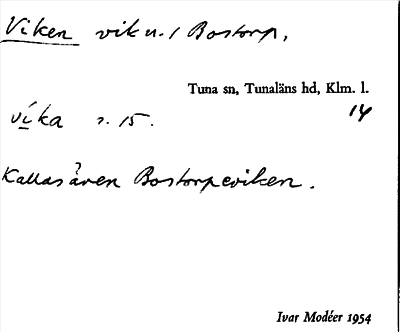 Viken vik u. / Bostorp,
Tuna sn, Tunaläns hd, Klm. l.
14
víka s. 15.
Kallas även Bostorpeviken.
Ivar Modéer 1954